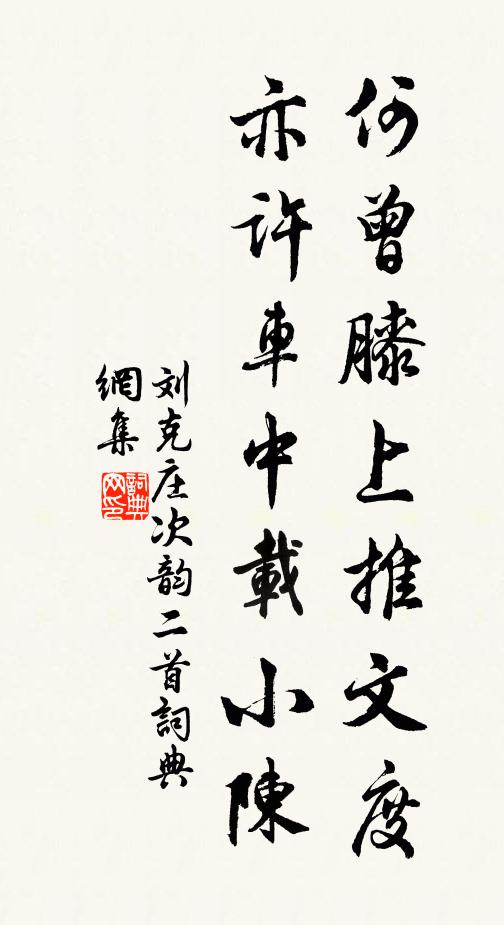 何曾膝上推文度
亦許車中載小陳
刘克庄次韵二首詞典
網集
詞典网印